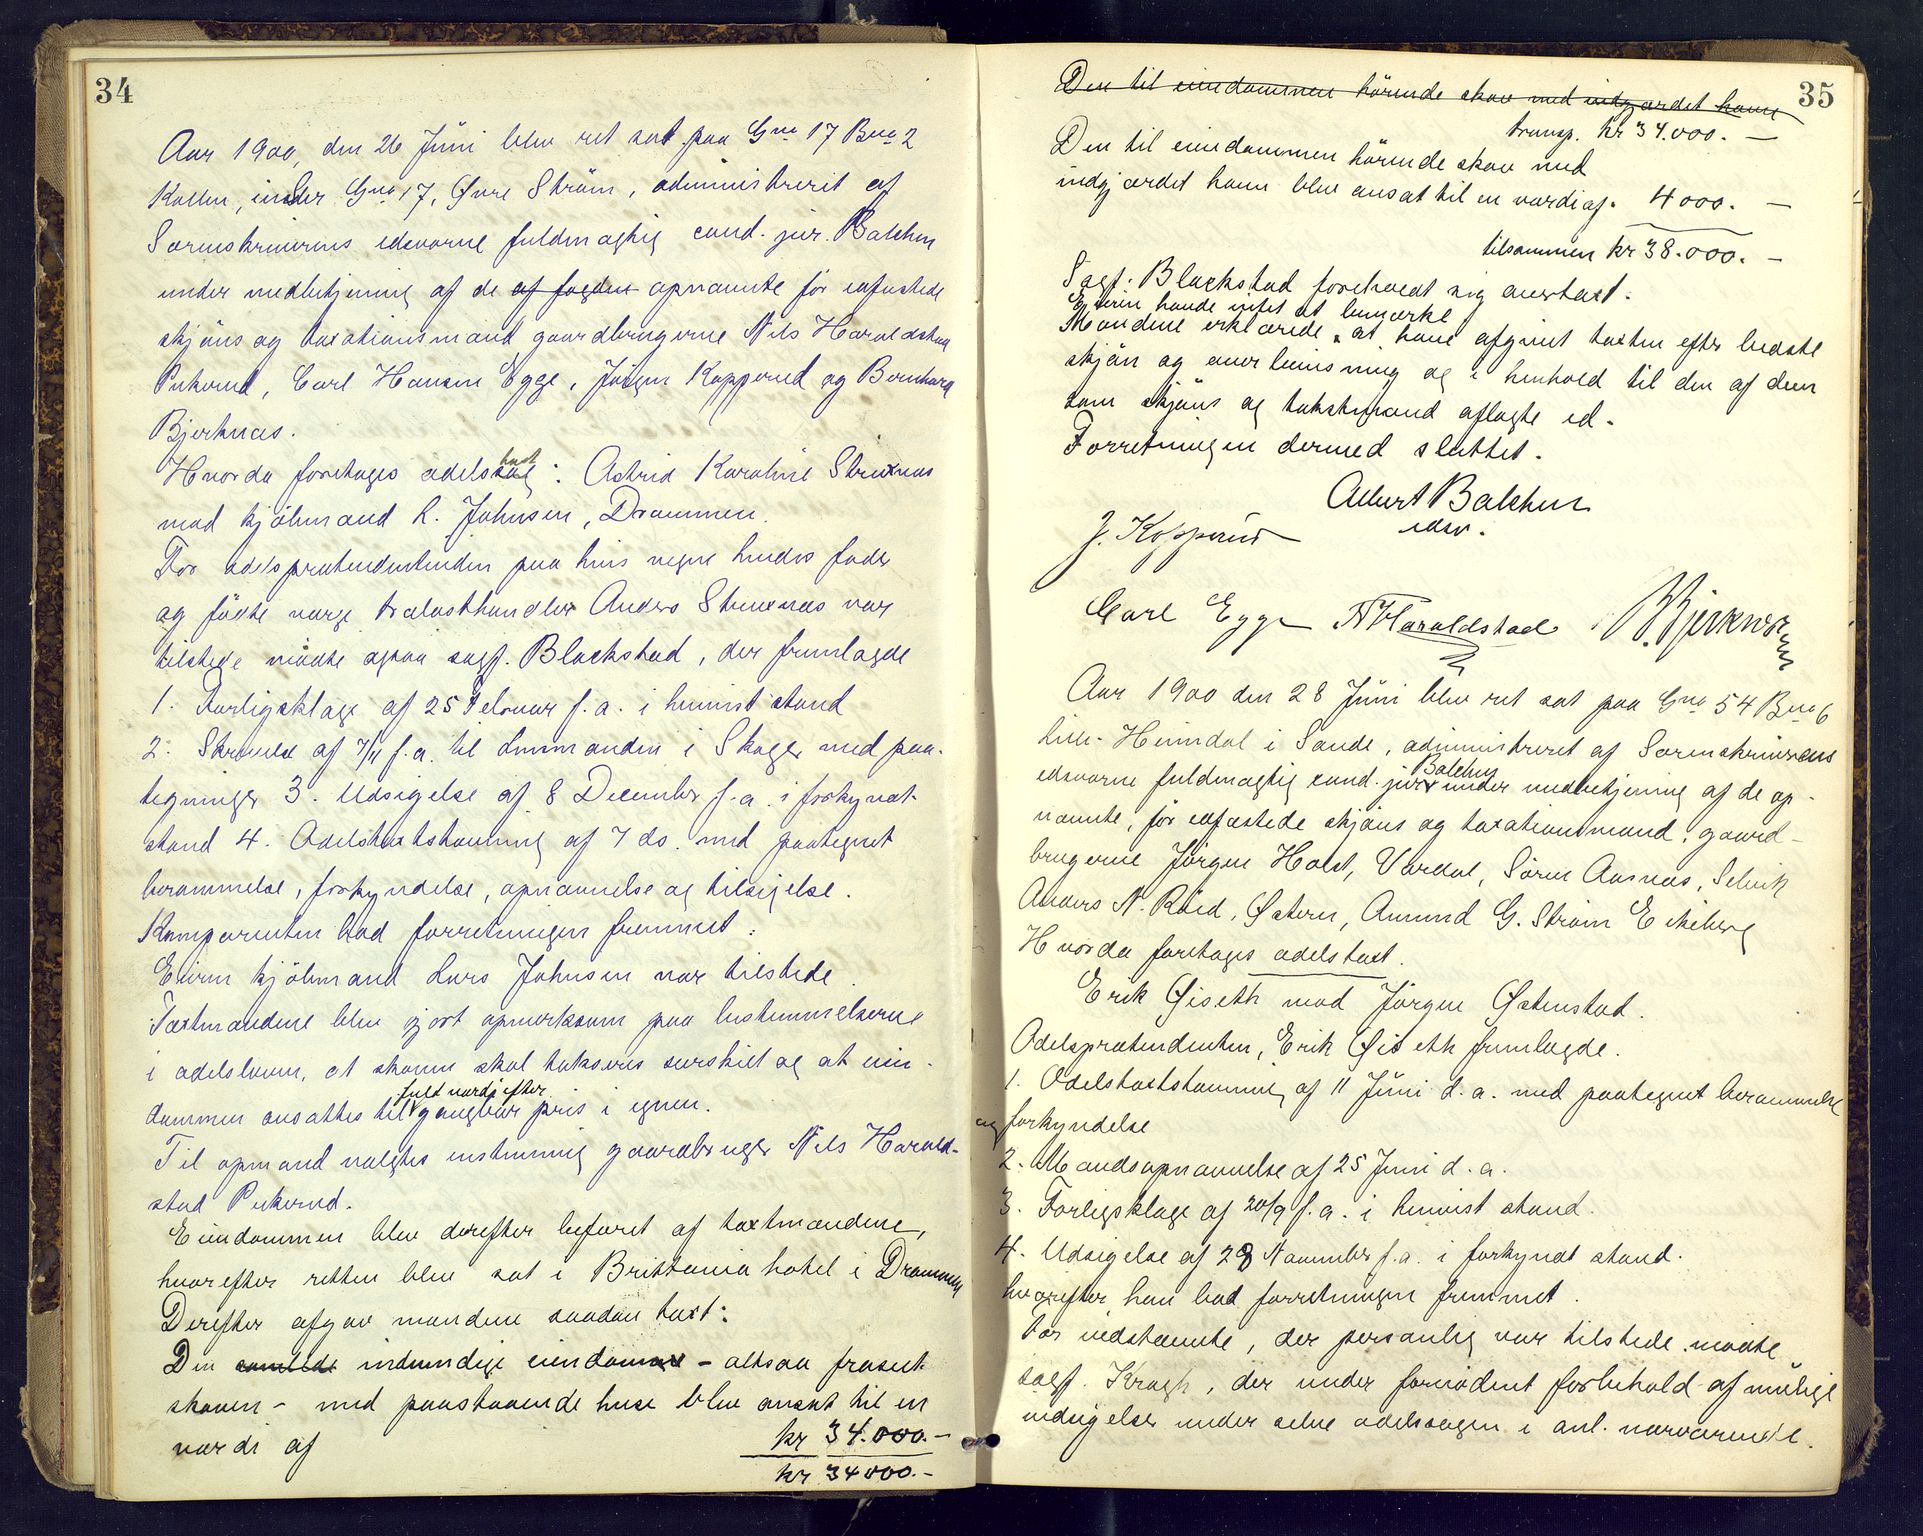 34
Aar 1900, den 26 Juni blev ret sat paa Gno 17 Bno 2
Kollen, under Gno 17, Øvre Strøm, administrerit af
Sorenskriverens edsvorne fuldmægtig cand. jur. Balchen
under medbetjening af de af fogden opnævnte før edfæstede
skjøns og taxationsmænd gaardbrugerne Nils Haraldstad
Pukerud, Carl Hansen Egge, Jørgen Kopperud og Bernhard
Bjerknæs.
Hvorda foretages odelstaxt: Astrid Karoline Strøxnæs
mod kjøbmand L. Johnsen, Drammen.
For odelsprætendentinden paa hvis vegne hendes fader
og fødte værge trælasthandler Anders Strøxnæs var
tilstede mødte ogsaa sagf. Blackstad, der fremlagde
1. Forligsklage af 25 Februar f. a. i henvist stand
2. Skrivelse af 7/11 f. a. til Lensmanden i Skoger med paa-
tegninger 3. Udsigelse af 8 December f. a. i forkyndt
stand 4. Odelstaxtstævning af 7 ds. med paategnet
berammelse, forkyndelse, opnævnelse og tilsigelse.
Komparenten bad forretningen fremmet.
Eieren kjøbmand Lars Johnsen var tilstede.
Taxtmændene blev gjort opmerksom paa bestemmelserne
i odelsloven, at skoven skal takseres særskilt og at eien-
fuld værdi efter
dommen ansættes til gangbar pris i egnen.
Til opmand valgtes enstemmig gaardbruger Nils Harald-
stad Pukerud.
Eiendommen blev derefter befaret af taxtmændene,
hvorefter retten blev sat i Brittania hotel i Drammen
Derefter afgav mændene saadan taxt:
Den samlede indvendige eiendommen - altsaa fraseet
skoven - med paastaaende huse blev ansat til en
værdi af kr 34.000.-
kr 34000.-
35
Den til eiendommen hørende skov med indgjærdet havn
transp. kr 34.000. -
Den til eiendommen hørende skov med
indgjærdet havn blev ansat til en værdi af. 4000. -
tilsammen kr 38.000. -
Sagf. Blackstad foreholdt sig overtaxt.
Eieren havde intet at bemærke
Mændene erklærede, at have afgivet taxten efter bedste
skjøn og overbevisning og i henhold til den af dem
som skjøns og takstmænd aflagte ed.
Forretningen dermed sluttet.
Albert Balchen
edsv.
J. Kopperud
Carl Egge N Haraldstad B. Bjerknæs
Aar 1900 den 28 Juni blev ret sat paa Gno 54 Bno 6
Lille-Heimdal i Sande, administreret af Sorenskriverens
Balchen
edsvorne fuldmægtig cand. jur. under medbetjening af de op-
nævnte, før edfæstede skjøns og taxationsmænd, gaard-
brugerne Jørgen Holst, Vardal, Søren Aasnæs, Selvik
Anders N. Røed, Østern, Amund G. Strøm Ekeberg
Hvorda foretages odelstaxt.
Erik Øiseth mod Jørgen Østenstad.
Odelsprætendenten, Erik Øiseth fremlagde.
1. Odelstaxtstævning af 11 Juni d. a. med paategnet berammelse
og forkyndelse
2. Mandsopnævnelse af 25 Juni d. a.
3. Forligsklage af 20/9 f. a. i henvist stand.
4. Udsigelse af 28 November f. a. i forkyndt stand.
hvorefter han bad forretningen fremmet.
For indstævnte, der personlig var tilstede mødte
sagf. Kragh, der under fornødent forbehold af mulige
indsigelser under selve odelssagen i anl. nærværende.